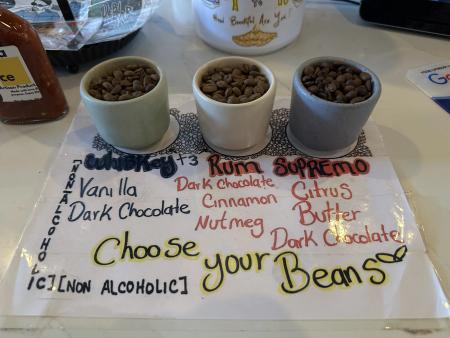 How Beautiful Are You
Whiskey +3 Rum Supremo
Vanilla
Dark Chocolate
Dark Chocolate
Cinnamon
Nutmeg
Citrus
Butter
Dark Chocolate
Choose your Beans
[NON ALCOHOLIC]
[NON ALCOHOLIC]